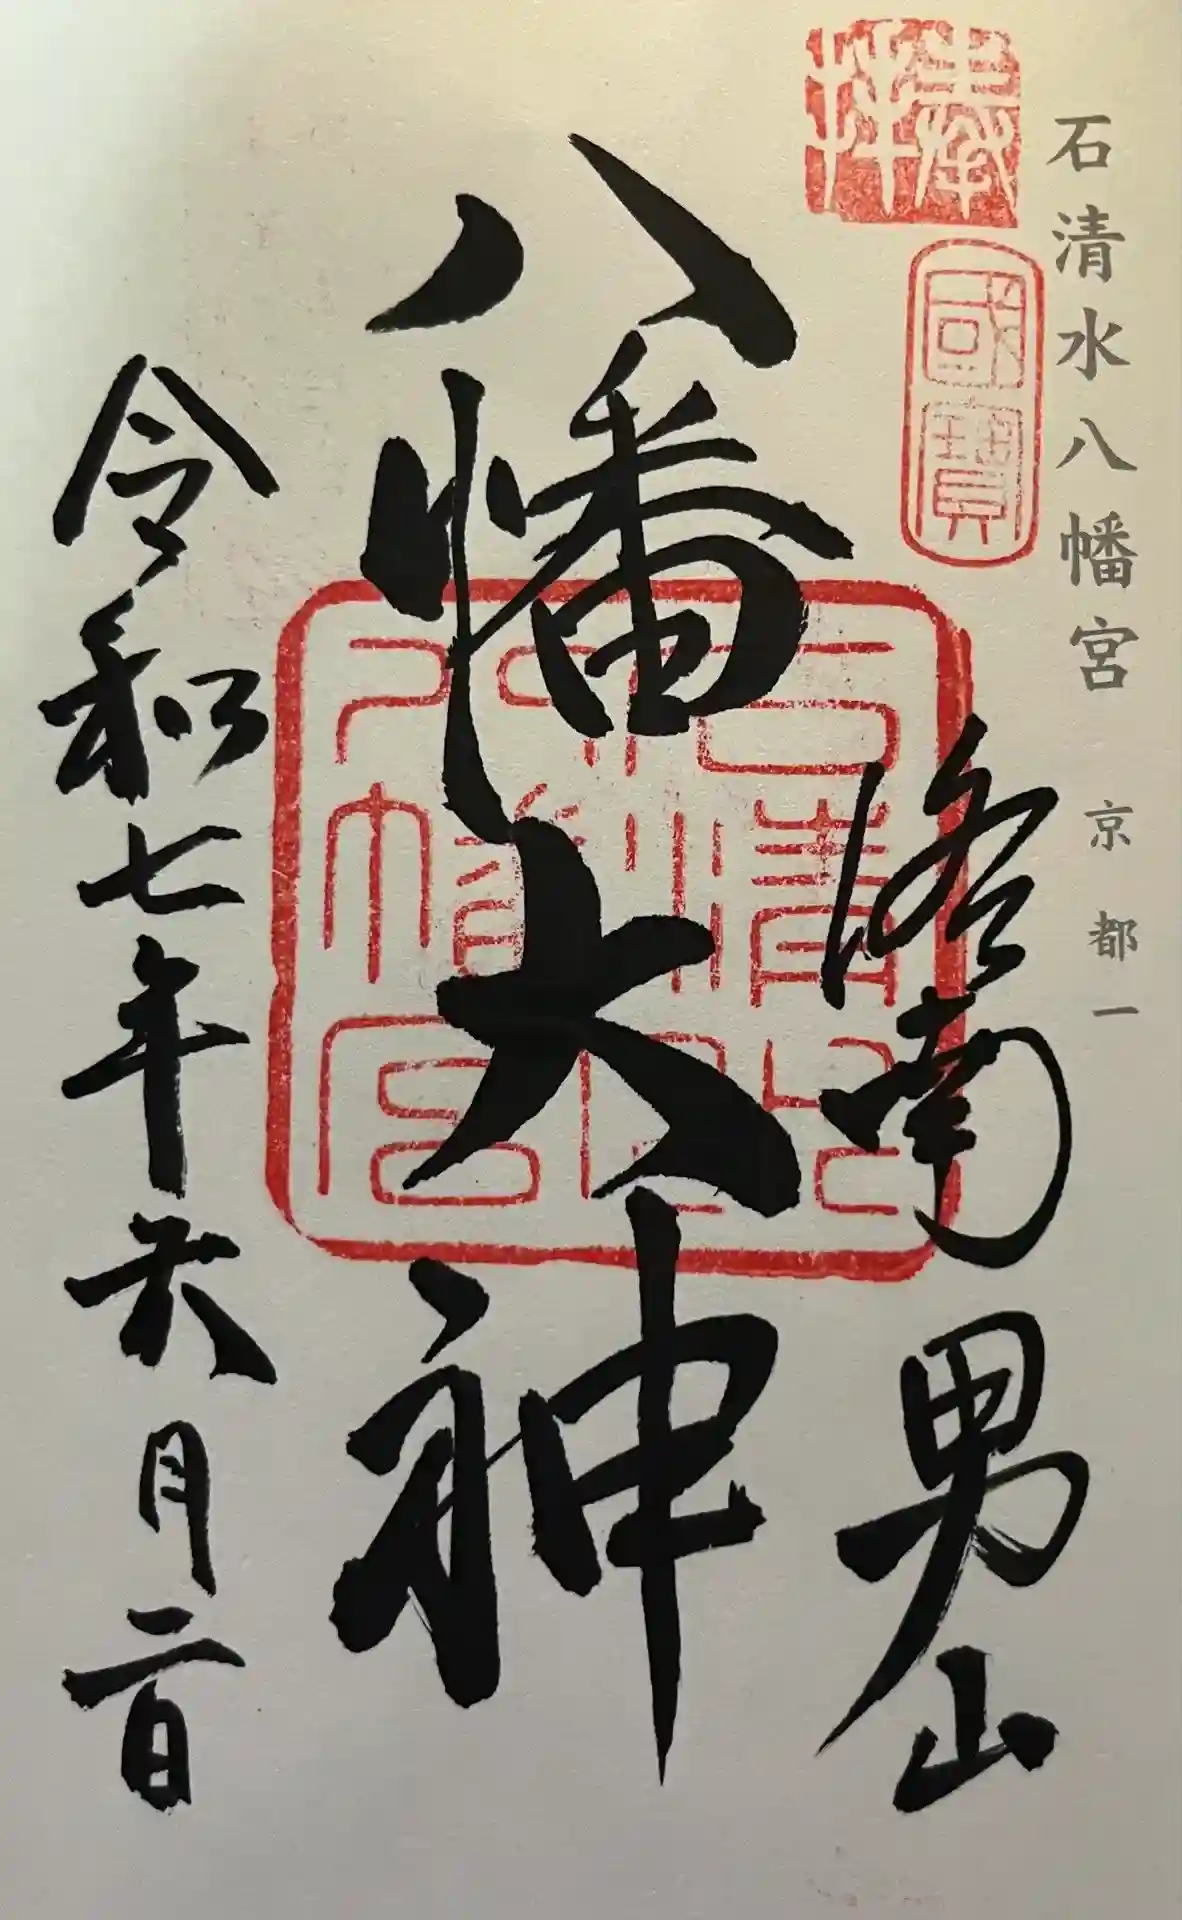 石清水八幡宮 京都一
奉拝
國寶
洛南男山
八幡大神
石清水八幡宮
令和七年六月二日